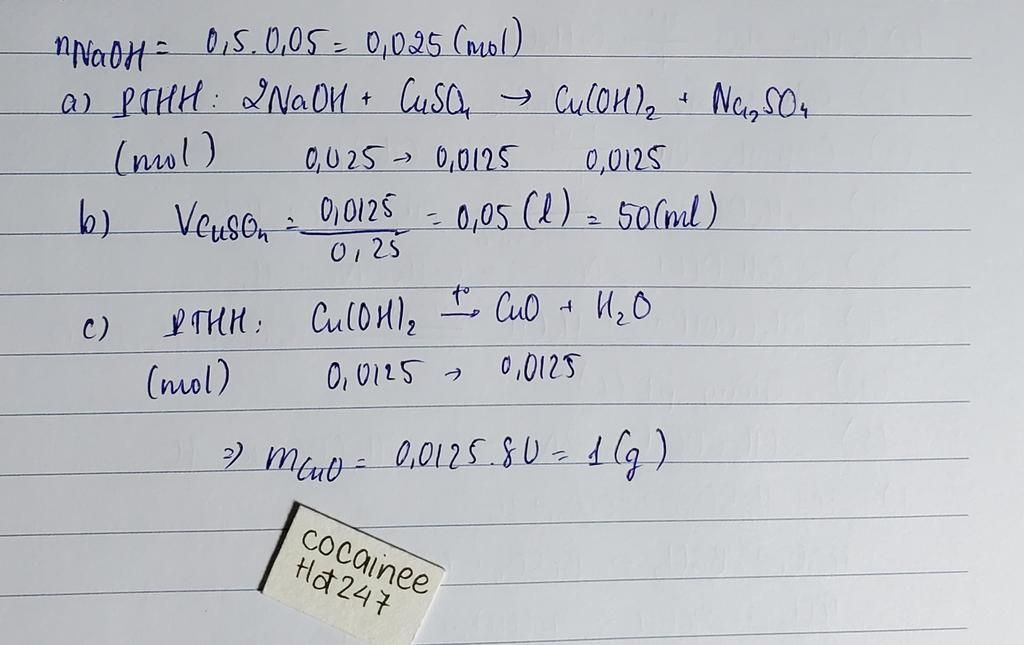 nNaOH = 0,5. 0,05 = 0,025 (mol)
a) PTHH: 2NaOH + CuSO4 → Cu(OH)2 + Na2SO4
(mol) 0,025 → 0,0125 0,0125
b) VCuSO4 = 0,0125 / 0,25 = 0,05 (l) = 50(ml)
c) PTHH: Cu(OH)2 t° → CuO + H2O
(mol) 0,0125 → 0,0125
=> mCuO = 0,0125.80 = 1 (g)
cocainee
Hot247